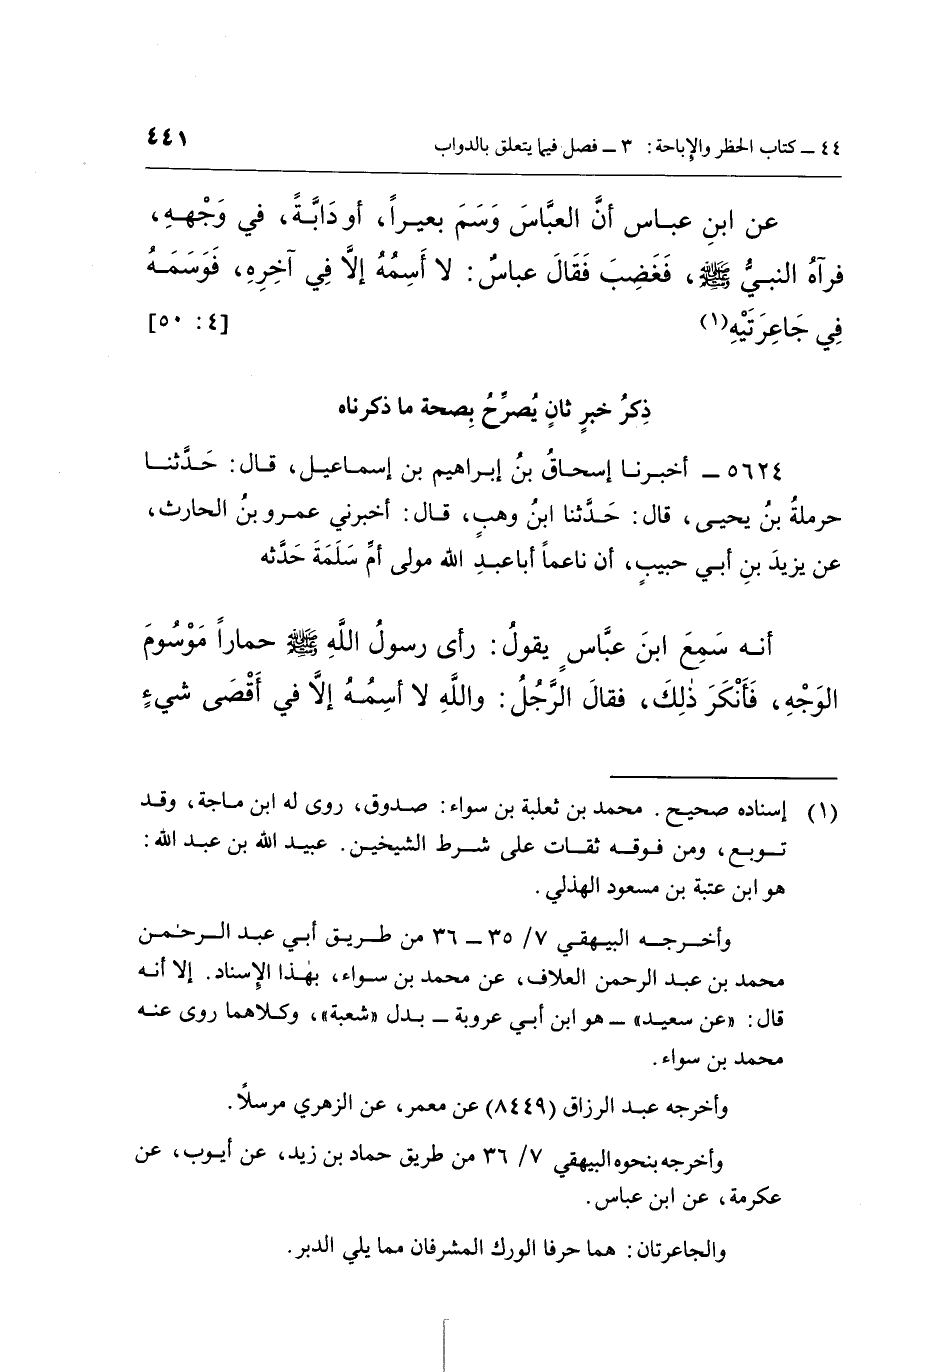 ٤٤ ــ كتاب الحظر والإباحة: ٣ ــ فصل فيما يتعلق بالدواب ٤٤١
عن ابنِ عباس أنَّ العبَّاسَ وَسَمَ بعيراً، أو دَابَّةً، في وَجْهِهِ،
فرآهُ النبيُّ ﷺ، فَغَضِبَ فَقَالَ عباسٌ: لا أَسِمُهُ إلَّا فِي آخِرِهِ، فَوَسَمَهُ
فِي جَاعِرَتَيْهِ(١) [٤: ٥٠]
ذِكرُ خبرٍ ثانٍ يُصرِّحُ بِصحة ما ذكرناه
٥٦٢٤ ــ أخبرنا إسحاقُ بنُ إبراهيم بن إسماعيل، قال: حَدَّثنا
حرملةُ بنُ يحيى، قال: حَدَّثنا ابنُ وهبٍ، قال: أخبرني عمرو بنُ الحارث،
عن يزيدَ بنِ أبي حبيبٍ، أن ناعماً أبا عبدِ الله مولى أمِّ سَلَمَةَ حَدَّثه
أنه سَمِعَ ابنَ عبَّاسٍ يقولُ: رأى رسولُ اللَّهِ ﷺ حماراً مَوْسُومَ
الوَجْهِ، فَأَنْكَرَ ذٰلِكَ، فقالَ الرَّجُلُ: واللَّهِ لا أسِمُهُ إلَّا في أَقْصَى شيءٍ
(١) إسناده صحيح. محمد بن ثعلبة بن سواء: صدوق، روى له ابن ماجة، وقد
توبع، ومن فوقه ثقات على شرط الشيخين. عبيد الله بن عبد الله:
هو ابن عتبة بن مسعود الهذلي.
وأخرجه البيهقي ٧/ ٣٥ ــ ٣٦ من طريق أبي عبد الرحمٰن
محمد بن عبد الرحمن العلاف، عن محمد بن سواء، بهٰذا الإسناد. إلا أنه
قال: «عن سعيد» ــ هو ابن أبي عروبة ــ بدل «شعبة»، وكلاهما روى عنه
محمد بن سواء.
وأخرجه عبد الرزاق (٨٤٤٩) عن معمر، عن الزهري مرسلاً.
وأخرجه بنحوه البيهقي ٧/ ٣٦ من طريق حماد بن زيد، عن أيوب، عن
عكرمة، عن ابن عباس.
والجاعرتان: هما حرفا الورك المشرفان مما يلي الدبر.